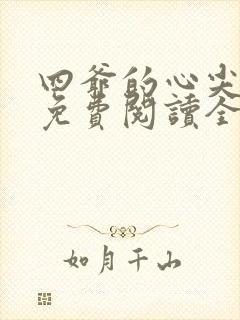 四爺的心尖
免費閱讀全
如月千山